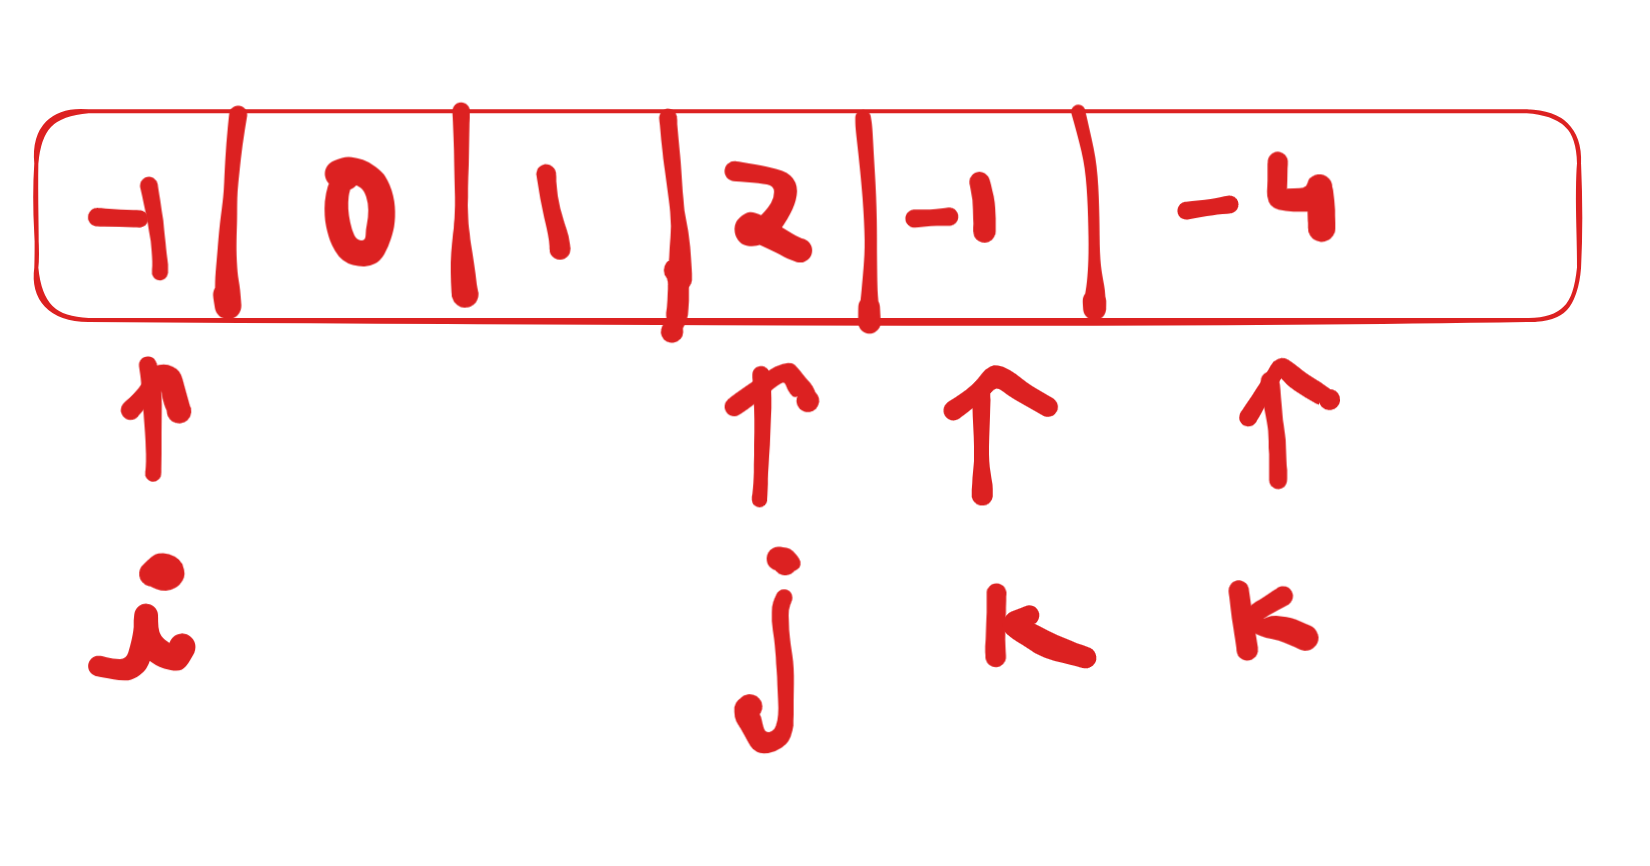 -1 0 1 2 -1 -4
i j k k